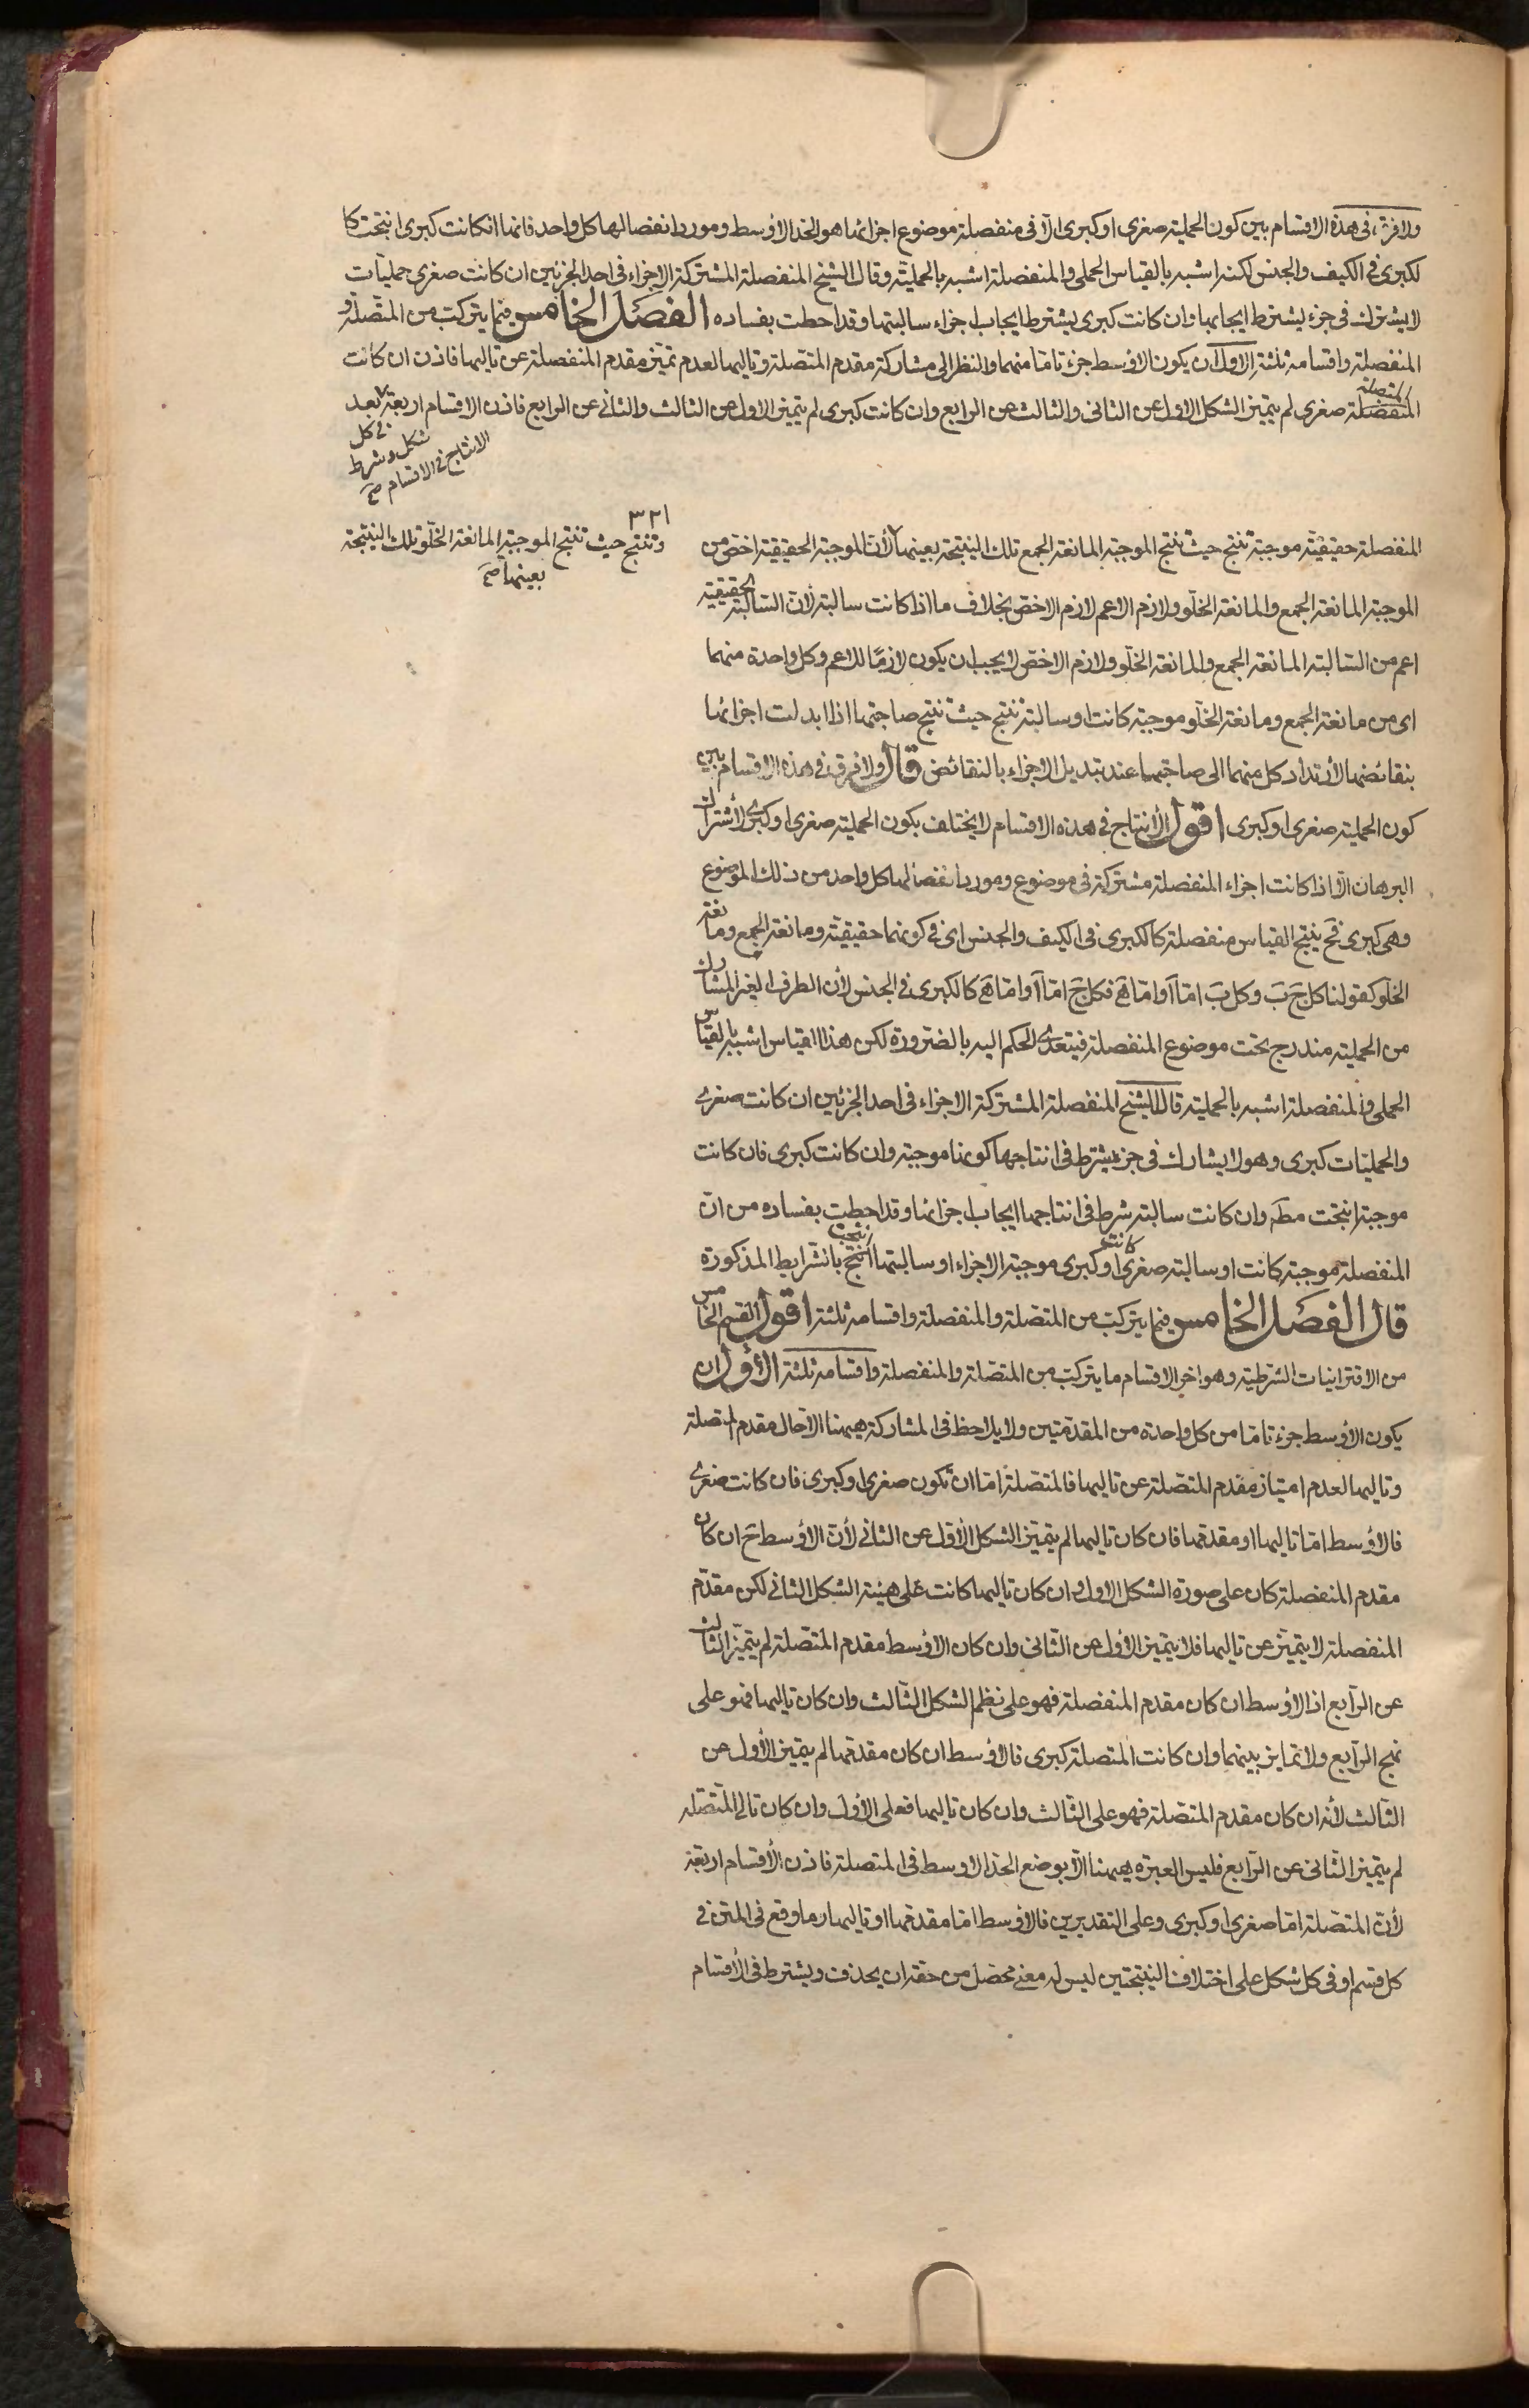 ولا فرق فى هذه الاقسام بين كون الحملية صغرى او كبرى الا فى منفصلة موضوع اجزائها هو الحد الاوسط ومورد انفصالها كل واحد فانها انكانت كبرى انتجت كا
لكبرى فى الكيف والجنس لكنه اشبه بالقياس الحملى والمنفصلة اشبه بالحملية وقال الشيخ المنفصلة المشتركة الاجزاء فى احد الجزئين ان كانت صغرى حمليات
لا يشترك فى جزء يشترط ايجابها وان كانت كبرى يشترط ايجاب اجزاء سالبتها وقد احطت بفساده الفصل الخامس فيما يتركب من المتصلة و
المنفصلة واقسامه ثلثة الاول ان يكون الاوسط جزء تاما منهما والنظر الى مشاركة مقدم المتصلة وتاليها لعدم تميز مقدم المنفصلة عن تاليها فاذن ان كانت
المتصلة
المنفصلة صغرى لم يتميز الشكل الاول عن الثانى والثالث عن الرابع وان كانت كبرى لم يتميز الاول عن الثالث والثانى عن الرابع فاذن الاقسام اربعة بعد
فى كل
شكل وشرط
الانتاج فى الاقسام صح
٣٢١
المنفصلة حقيقية موجبة تنتج حيث تنتج الموجبة المانعة الجمع تلك النتيجة بعينها لأن الموجبة الحقيقية اخص من
وتنتج حيث تنتج الموجبة المانعة الخلو تلك النتيجة
بعينها صح
الموجبة المانعة الجمع والمانعة الخلو ولازم الاعم لازم الاخص بخلاف ما اذا كانت سالبة لأن السالبة الحقيقية
اعم من السالبة المانعة الجمع والمانعة الخلو ولازم الاخص لا يجب ان يكون لازما للاعم وكل واحدة منهما
اى من مانعة الجمع ومانعة الخلو موجبة كانت او سالبة تنتج حيث تنتج صاحبتها اذا ابدلت اجزائها
بنقائضها لأرتداد كل منهما الى صاحبتها عند تبديل الاجزاء بالنقائض قال ولا فرق فى هذه الاقسام بين
كون الحملية صغرى او كبرى اقول الأنتاج فى هذه الاقسام لا يختلف بكون الحملية صغرى او كبرى لأشتراك
البرهان الا اذا كانت اجزاء المنفصلة مشتركة فى موضوع ومورد انفصالها كل واحد من ذلك الموضوع
وهى كبرى فح ينتج القياس منفصلة كالكبرى فى الكيف والجنس اى فى كونها حقيقية ومانعة الجمع ومانعة
الخلو كقولنا كل ج ب وكل ب اما آ واما ه فكل ج اما آ واما ه كالكبرى فى الجنس لأن الطرف الغير المشارك
من الحملية مندرج تحت موضوع المنفصلة فيتعدى الحكم اليه بالضرورة لكن هذا القياس اشبه بالقياس
الحملى والمنفصلة اشبه بالحملية قال الشيخ المنفصلة المشتركة الاجزاء فى احد الجزئين ان كانت صغرى
والحمليات كبرى وهو لا يشارك فى جزء يشترط فى انتاجها كونها موجبة وان كانت كبرى فان كانت
موجبة انتجت مطه وان كانت سالبة شرط فى انتاجها ايجاب اجزائها وقد احطت بفساده من ان
المنفصلة موجبة كانت او سالبة صغرى كانت او كبرى موجبة الاجزاء او سالبتها انتجت بالشرايط المذكورة
قال الفصل الخامس فيما يتركب من المتصلة والمنفصلة واقسامه ثلثة اقول القسم الخامس
من الاقترانيات الشرطية وهو اخر الاقسام ما يتركب من المتصلة والمنفصلة واقسامه ثلثة الأول ان
يكون الاوسط جزء تاما من كل واحدة من المقدمتين ولا يلاحظ فى المشاركة ههنا الا حال مقدم المتصلة
وتاليها لعدم امتياز مقدم المتصلة عن تاليها فالمتصلة اما ان تكون صغرى او كبرى فان كانت صغرى
فالاوسط اما تاليها او مقدمها فان كان تاليها لم يتميز الشكل الأول عن الثانى لأن الاوسط ح ان كان
مقدم المنفصلة كان على صورة الشكل الاول وان كان تاليها كانت على هيئة الشكل الثانى لكن مقدم
المنفصلة لا يتميز عن تاليها فلا يتميز الاول عن الثانى وان كان الاوسط مقدم المتصلة لم يتميز الثالث
عن الرابع اذ الاوسط ان كان مقدم المنفصلة فهو على نظم الشكل الثالث وان كان تاليها فهو على
نهج الرابع ولا تمايز بينهما وان كانت المتصلة كبرى فالاوسط ان كان مقدمها لم يتميز الأول عن
الثالث لأنه ان كان مقدم المتصلة فهو على الثالث وان كان تاليها فعلى الأول وان كان تالى المتصلة
لم يتميز الثانى عن الرابع فليس العبرة ههنا الا بوضع الحد الاوسط فى المتصلة فاذن الأقسام اربعة
لأن المتصلة اما صغرى او كبرى وعلى التقديرين فالاوسط اما مقدمها او تاليها وما وقع فى المتن فى
كل قسم او فى كل شكل على اختلاف النسختين ليس له معنى محصل من حقه ان يحذف ويشترط فى الأقسام